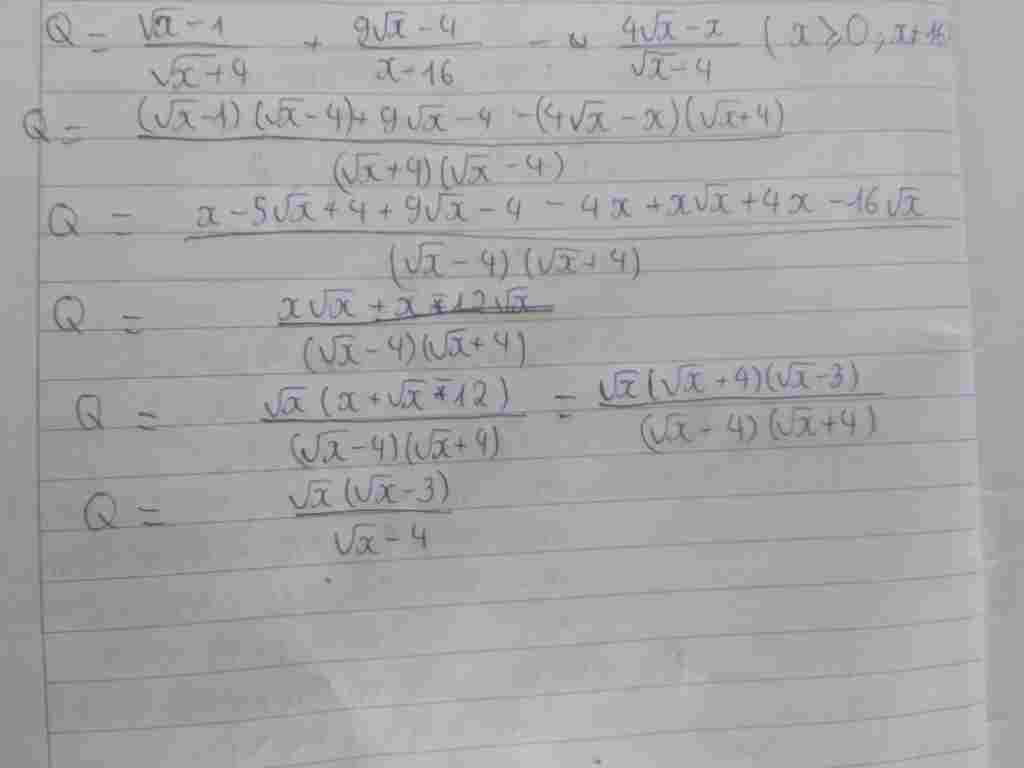 Q = (√x - 1)/(√x + 4) + (9√x - 4)/(x - 16) - (4√x - x)/(√x - 4) ( x ⩾ 0 ; x ≠ 16
Q = ((√x - 1)(√x - 4) + 9√x - 4 - (4√x - x)(√x + 4))/((√x + 4)(√x - 4))
Q = (x - 5√x + 4 + 9√x - 4 - 4x + x√x + 4x - 16√x)/((√x - 4)(√x + 4))
Q = (x√x + x - 12√x)/((√x - 4)(√x + 4))
Q = (√x(x + √x - 12))/((√x - 4)(√x + 4)) = (√x(√x + 4)(√x - 3))/((√x - 4)(√x + 4))
Q = (√x(√x - 3))/(√x - 4)